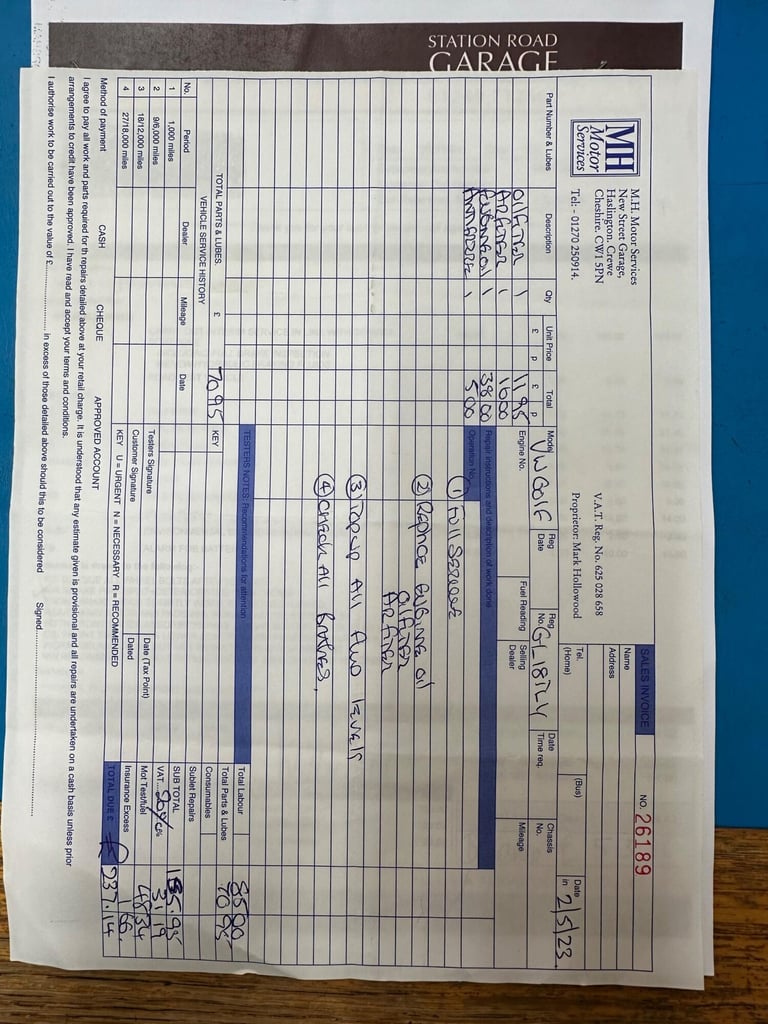 STATION ROAD
GARAGE
MH
Motor
Services
M.H. Motor Services
New Street Garage,
Haslington, Crewe
Cheshire. CW1 5PN
Tel: - 01270 250914.
V.A.T. Reg. No. 625 028 658
Proprietor: Mark Hollowood
SALES INVOICE
NO. 26189
Name
Address
Tel. (Home)
(Bus)
Date in 2/5/23
Model VW GOlF
Reg Date
Reg No. GL18TLY
Date Time req.
Chassis No.
Engine No.
Fuel Reading
Selling Dealer
Mileage
Part Number & Lubes Description Qty Unit Price £ p Total £ p
OilFilTER 1 11 95
AiRFilTER 1 16 00
ENGiNE Oil 1 38 00
ANTiFREEZE 1 5 00
TOTAL PARTS & LUBES. £ 70 95
Operation No. Repair instructions and description of work done
① Full SERVICE
② REPlACE ENGiNE Oil
OilFilTER
AiRFilTER
③ TOPUP All Fluid lEVElS
④ CHECK All BRAKES,
KEY TESTERS NOTES: Recommendations for attention
VEHICLE SERVICE HISTORY
No. Period Dealer Mileage Date
1 1,000 miles
2 9/6,000 miles
3 18/12,000 miles
4 27/18,000 miles
Testers Signature
Customer Signature
Date (Tax Point)
Dated
KEY U = URGENT N = NECESSARY R = RECOMMENDED
Total Labour 85 00
Total Parts & Lubes 70 95
Consumables
Sublet Repairs
SUB TOTAL 155.95
VAT 20% 31.19
Mot Test/fuel 48 34
Insurance Excess 1 66
TOTAL DUE £ £237.14
Method of payment CASH CHEQUE APPROVED ACCOUNT
I agree to pay all work and parts required for th repairs detailed above at your retail charge. It is understood that any estimate given is provisional and all repairs are undertaken on a cash basis unless prior
arrangements to credit have been approved. I have read and accept your terms and conditions.
I authorise work to be carried out to the value of £ in excess of those detailed above should this to be considered Signed